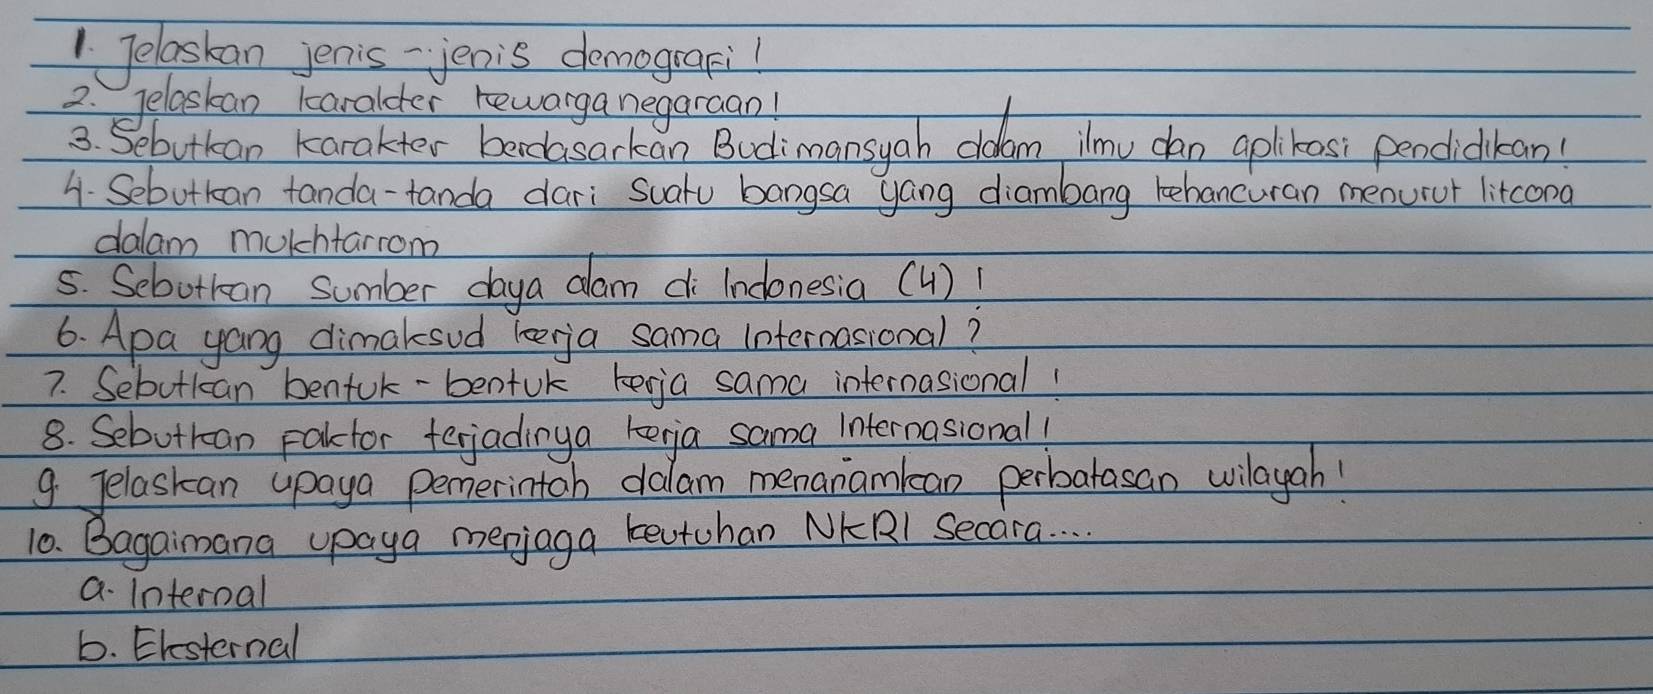 1. Jelaskan jenis-jenis demografi!
2. Jelaskan karakter kewarganegaraan!
3. Sebutkan karakter berdasarkan Budimansyah dalam ilmu dan aplikasi pendidikan!
4. Sebutkan tanda-tanda dari suatu bangsa yang diambang kehancuran menurut litcona
dalam mukhtarrom
5. Sebutkan sumber daya alam di Indonesia (4)!
6. Apa yang dimaksud kerja sama Internasional?
7. Sebutkan bentuk-bentuk kerja sama internasional!
8. Sebutkan faktor terjadinya kerja sama Internasional!
9. Jelaskan upaya pemerintah dalam menanamkan perbatasan wilayah!
10. Bagaimana upaya menjaga keutuhan NKRI secara....
a. Internal
b. Eksternal